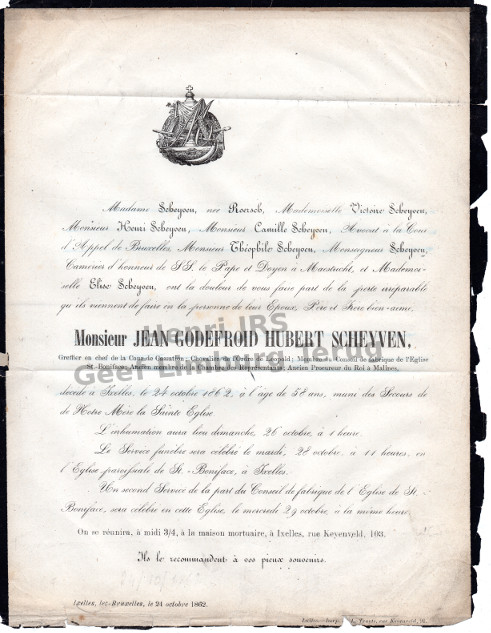 Madame Scheyven, née Roersch, Mademoiselle Victoire Scheyven,
Monsieur Henri Scheyven, Monsieur Camille Scheyven, Avocat à la Cour
d'Appel de Bruxelles, Monsieur Théophile Scheyven, Monseigneur Scheyven,
Camérier d'honneur de S.S. le Pape et Doyen à Maestricht, et Mademoi-
selle Elise Scheyven, ont la douleur de vous faire part de la perte irréparable
qu'ils viennent de faire en la personne de leur Epoux, Père et Frère bien-aimé,
Monsieur JEAN-GODEFROID HUBERT SCHEYVEN,
Greffier en chef de la Cour de Cassation; Chevalier de l'Ordre de Léopold; Membre du Conseil de fabrique de l'Eglise
St.-Boniface; Ancien membre de la Chambre des Représentants; Ancien Procureur du Roi à Malines,
Henri JRS
Geef Limburg
décédé à Ixelles, le 24 octobre 1862, à l'âge de 58 ans, muni des Secours de
de Notre Mère la Sainte Eglise
L'inhumation aura lieu dimanche, 26 octobre, à 1 heure.
Le Service funèbre sera célébré le mardi, 28 octobre, à 11 heures, en
l'Eglise paroissiale de St.-Boniface, à Ixelles.
Un second Service de la part du Conseil de fabrique de l'Eglise de St.-
Boniface, sera célébré en cette Eglise, le mercredi 29 octobre, à la même heure.
On se réunira, à midi 3/4, à la maison mortuaire, à Ixelles, rue Keyenveld, 103.
Ils le recommandent à vos pieux souvenirs.
Ixelles, lez-Bruxelles, le 24 octobre 1862.